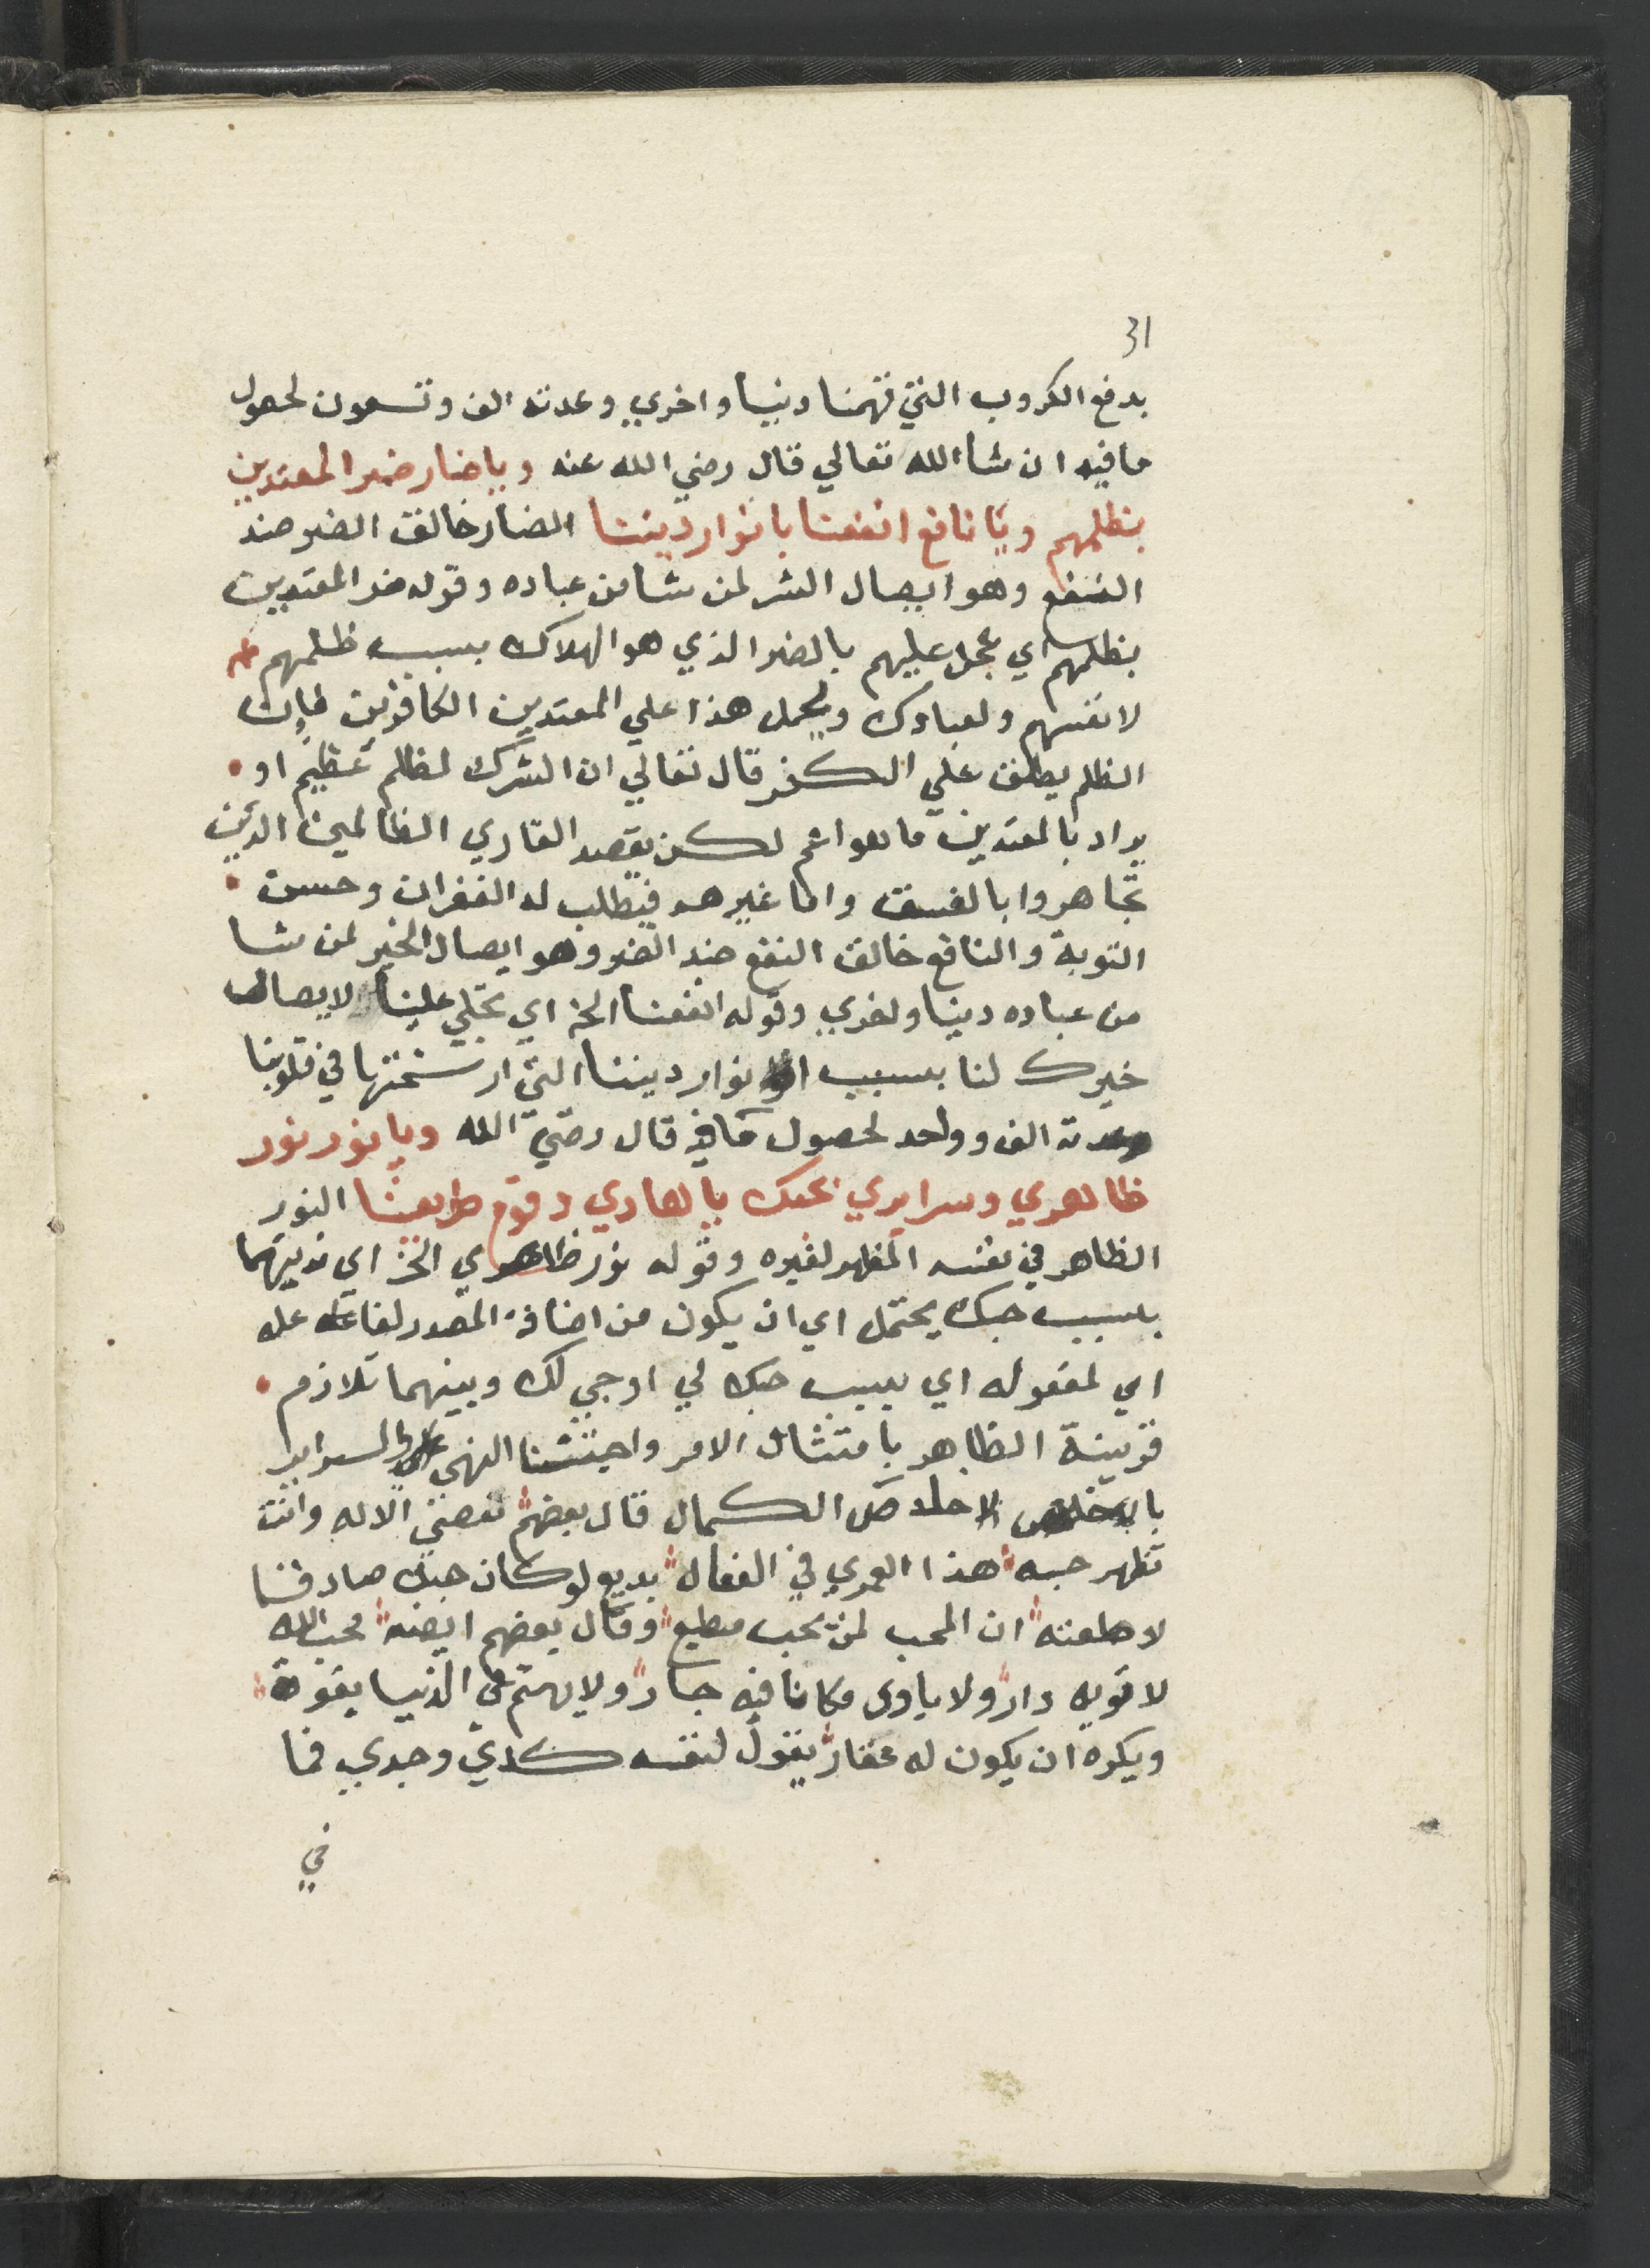 31
بدفع الكروب التي تهمنا دنيا واخري وعدته الف وتسعون لحصول
مافيه ان شا الله تعالي قال رضي الله عنه وياضار ضر المعتدين
بظلمهم ويا نافع انفعنا بانوار ديننا الضار خالق الضر ضد
النفع وهو ايصال الشر لمن شا من عباده وقوله ضر المعتدين
بظلمهم اي عجل عليهم بالضر الذي هو الهلاك بسبب ظلمهم
لانفسهم ولعبادك ويحمل هذا علي المعتدين الكافرين فان
الظلم يطلق علي الكفر قال تعالي ان الشرك لظلم عظيم او
يراد بالمعتدين ما هو اعم لكن يقصد القاري الظالمين الذين
تجاهروا بالفسق واما غيرهم فيطلب له الغفران وحسن
التوبة والنافع خالق النفع ضد الضر وهو ايصال الخير لمن شا
من عباده دينا واخري وقوله انفعنا الخ اي تجلي علينا لايصال
خيرك لنا بسبب انوار ديننا التي ارسختها في قلوبنا
وعدته الف وواحد لحصول مافيه قال رضي الله ويا نور نور
ظاهري وسرايري بحبك ياهادي وقوم طريقنا النور
الظاهر في نفسه المظهر لغيره وقوله نور ظاهري الخ اي زينهما
بسبب حبك يحتمل اي ان يكون من اضافة المصدر لفاعله
اي لمفعوله اي بسبب حبك لي او حبي لك وبينهما تلازم
فزينة الظاهر بامتثال الامر واجتناب النهي والسراير
الاخلاص الكمال قال بعضهم تعصي الاله وانت
تظهر حبه هذا لعمري في الفعال بديع لو كان حبك صادقا
لاطعته ان المحب لمن يحب مطيع وقال بعضهم ايضه محب الله
لا تويه دار ولا ياوي مكانا فيه جار ولا يهتم في الدنيا بقوة
ويكره ان يكون له عقار يقول لنفسه كدي وجدي فما
في